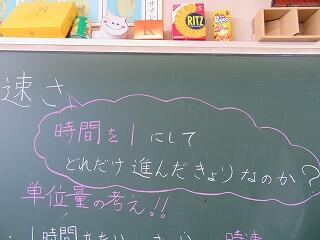 RITZ
速さ
時間を1にして
どれだけ進んだきょりなのか?
単位量の考え!!
・1時間あたり
時速